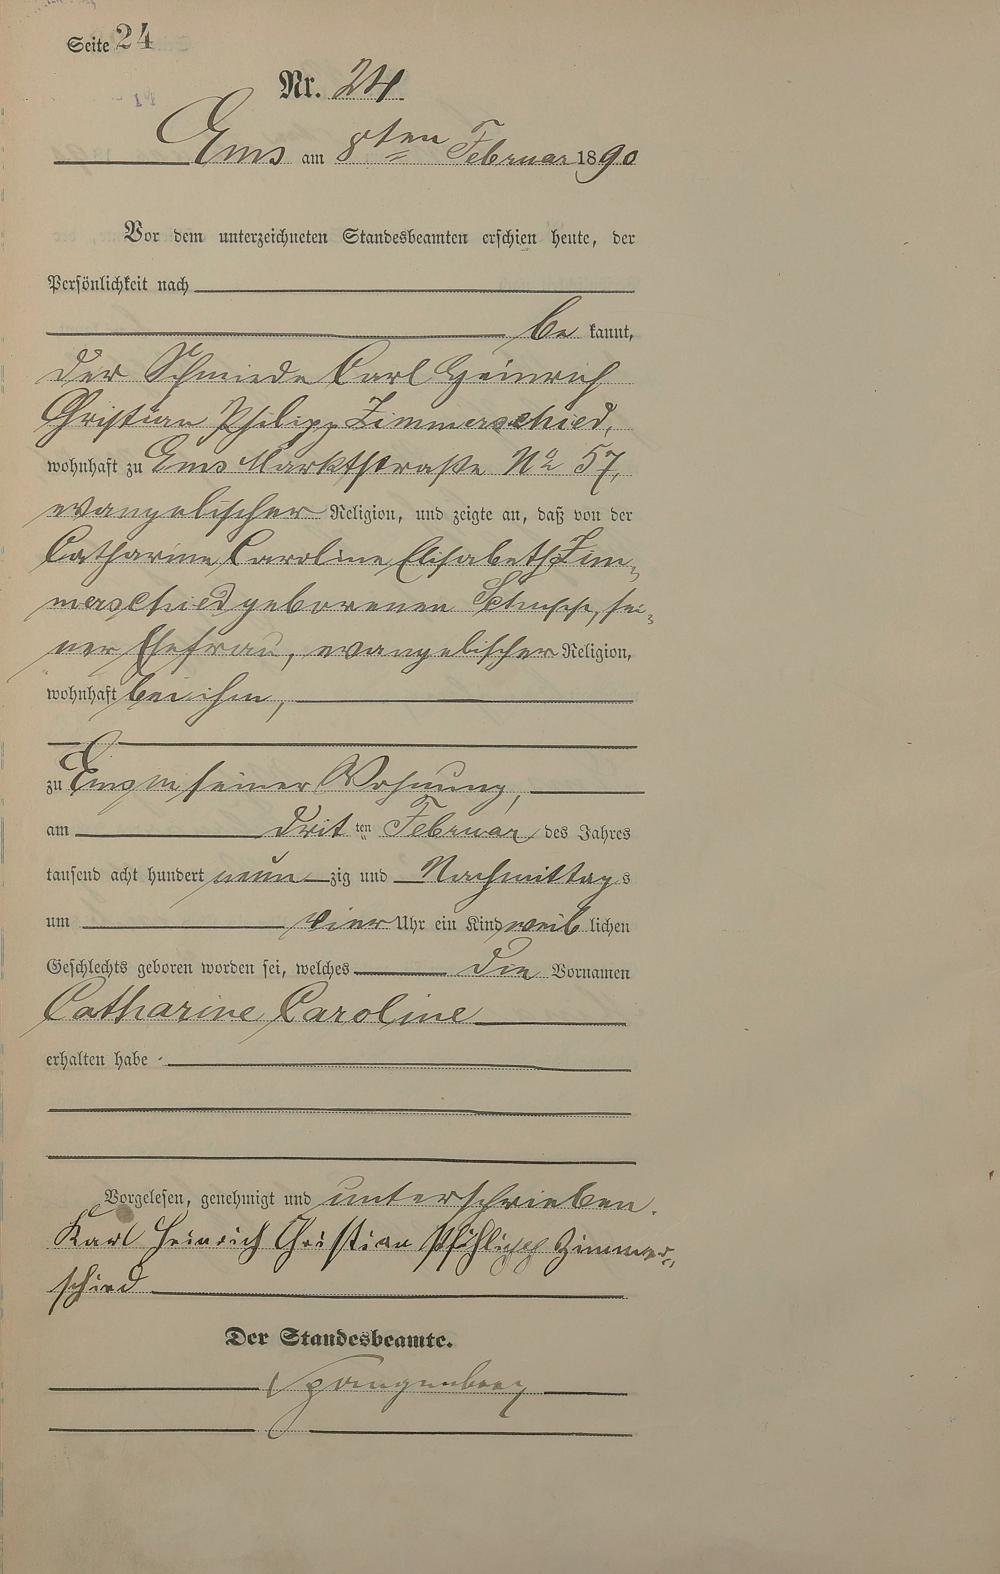 Seite 24
Nr. 24
Ems am 8ten Februar 1890
Vor dem unterzeichneten Standesbeamten erschien heute, der
Persönlichkeit nach
be kannt,
der Schmiede Carl Heinrich
Christian Philipp Zimmerschied,
wohnhaft zu Ems Marktstraße No 57,
evangelischer Religion, und zeigte an, daß von der
Catharine Caroline Elisabeth Zim-
merschied geborenen seі-
ner Ehefrau, evangelischer Religion,
wohnhaft bei ihm,
zu Ems in seiner Wohnung,
am drit ten Februar des Jahres
tausend acht hundert neun zig und Nachmittags
um vier Uhr ein Kind weib lichen
Geschlechts geboren worden sei, welches die Vornamen
Catharine Caroline
erhalten habe
Vorgelesen, genehmigt und unterschrieben.
Karl Heinrich Christian Phihlipp Zimmer-
schied
Der Standesbeamte.
Spangenberg